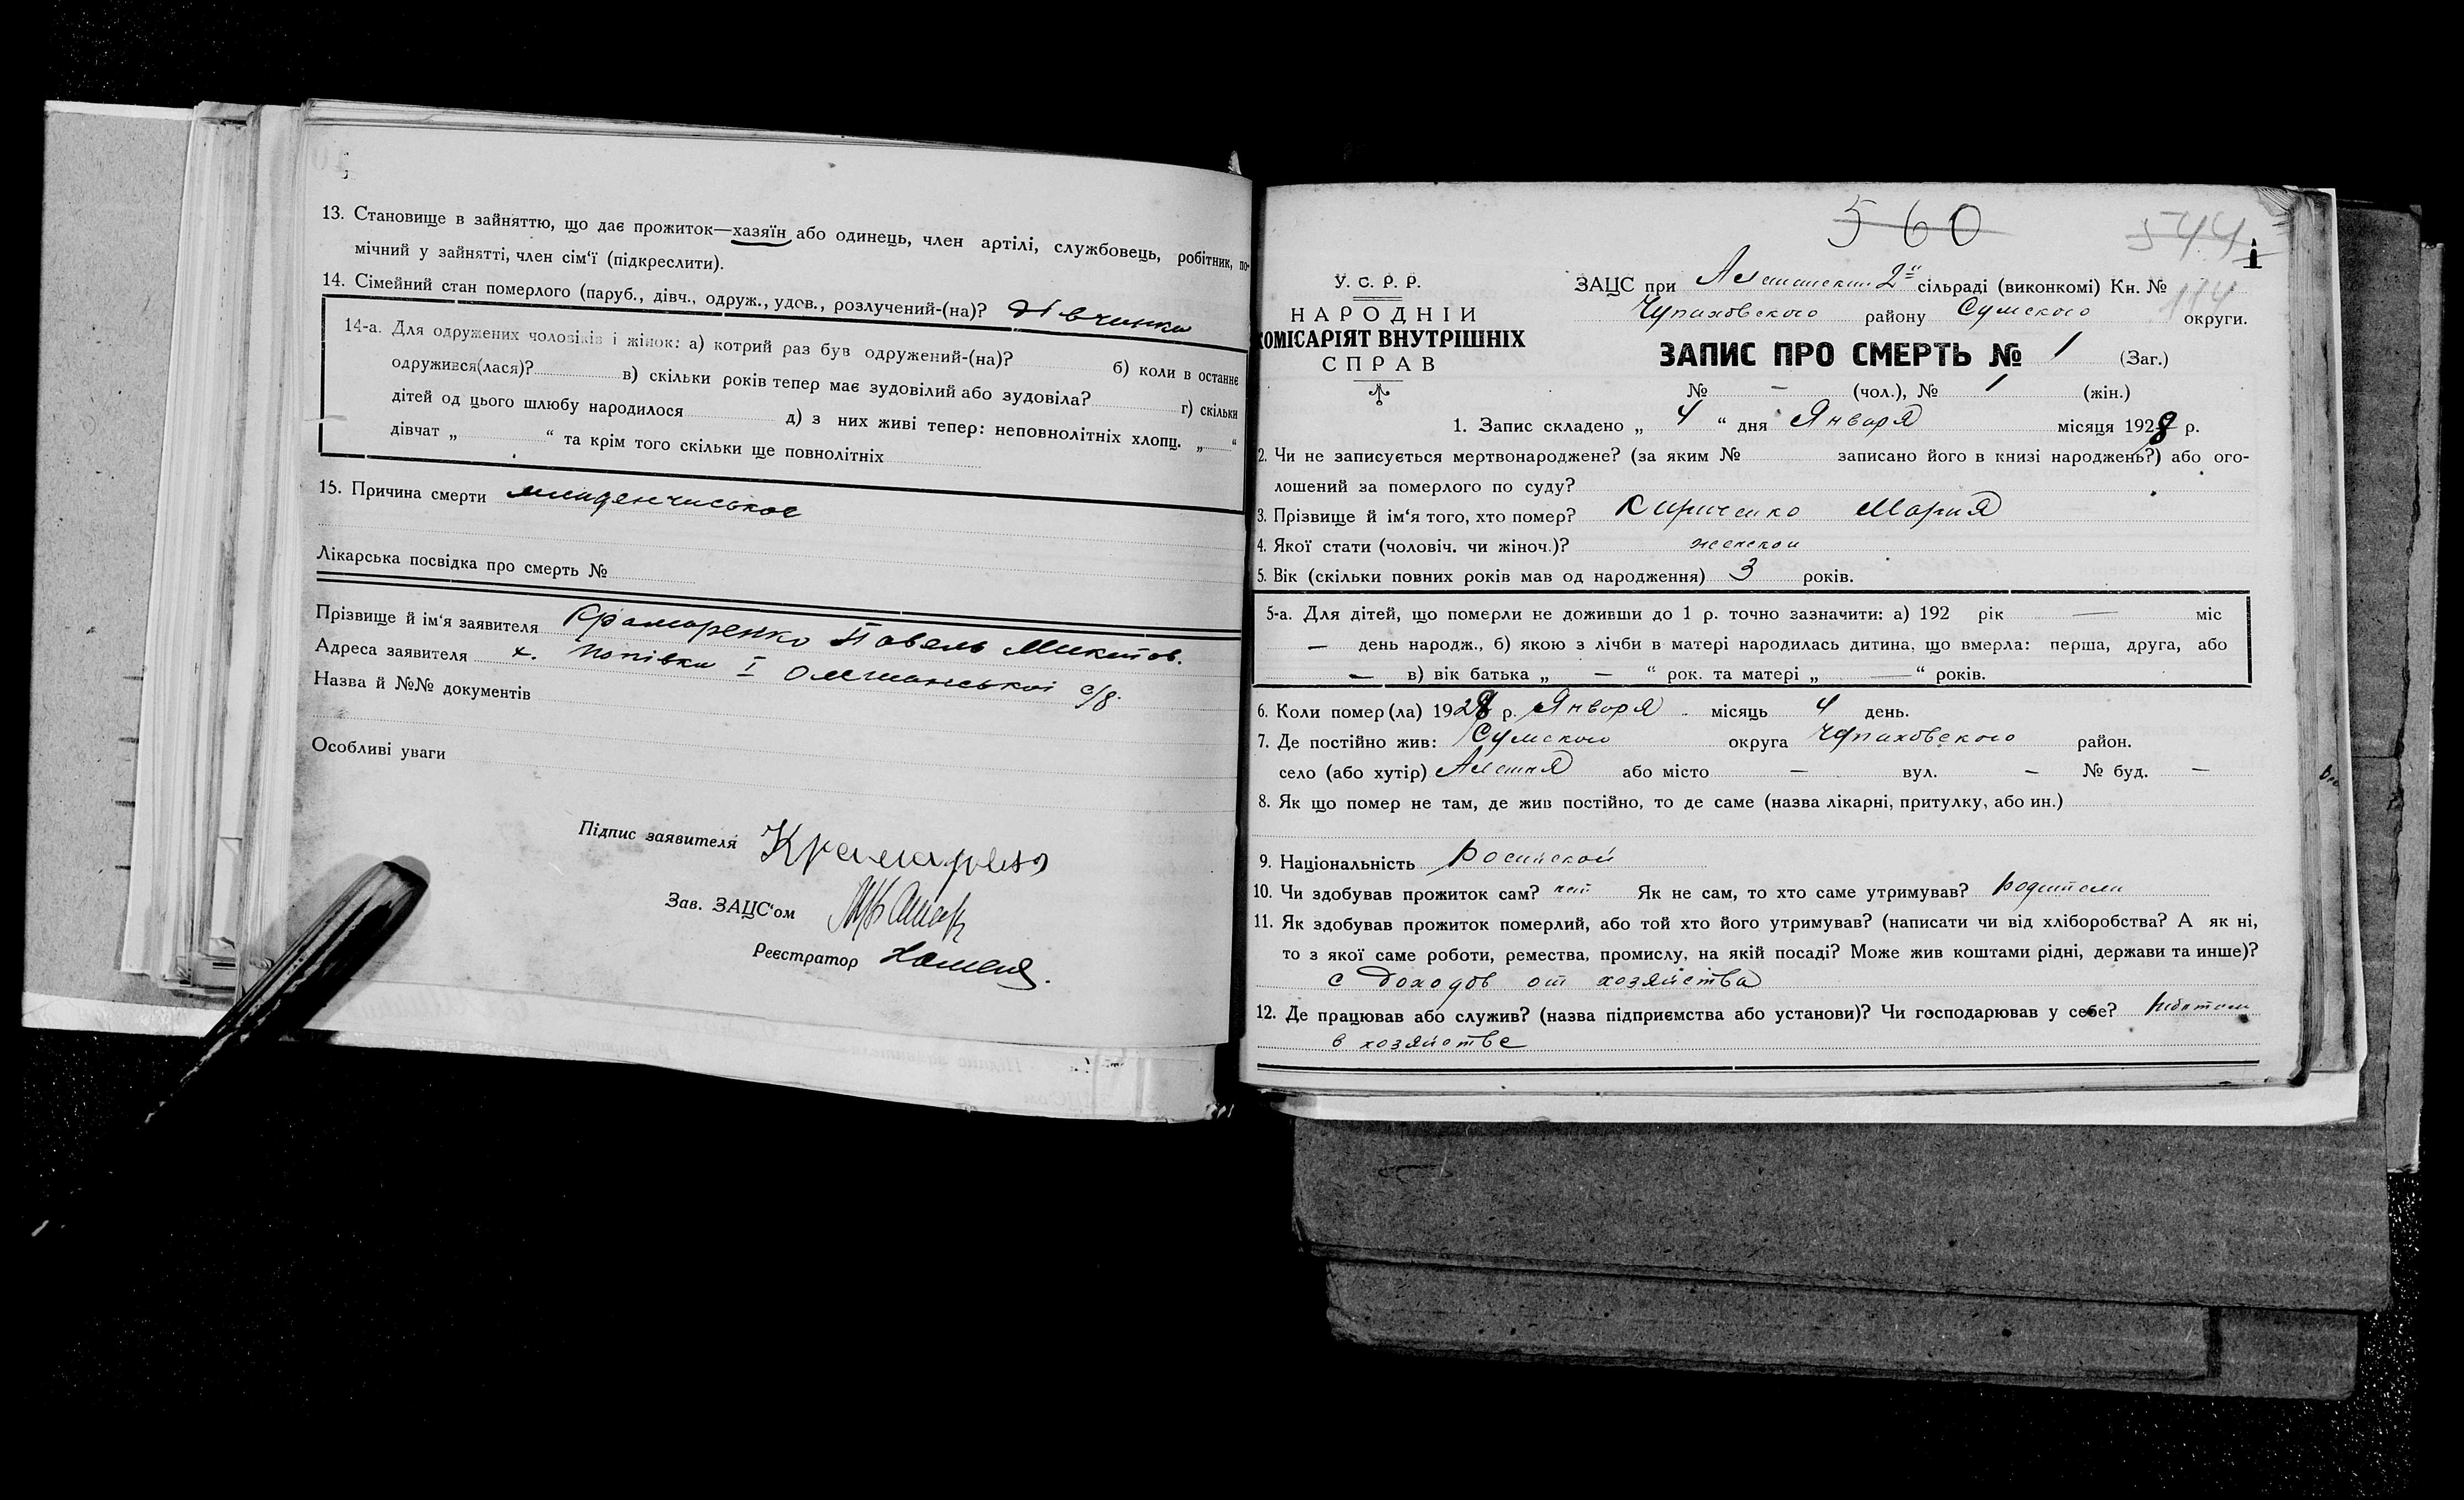 13. Становище в зайняттю, що дає прожиток—хазяїн або одинець, член артілі, службовець, робітник, по-
мічний у зайнятті, член сім'ї (підкреслити).
14. Сімейний стан померлого (паруб., дівч., одруж., удов., розлучений-(на)? дівчинка
14-а. Для одружених чоловіків і жінок: а) котрий раз був одружений-(на)? б) коли в останнє
одружився(лася)? в) скільки років тепер має зудовілий або зудовіла? г) скільки
дітей од цього шлюбу народилося д) з них живі тепер: неповнолітніх хлопц. „ “
дівчат „ “ та крім того скільки ще повнолітніх
15. Причина смерти
Лікарська посвідка про смерть №
Прізвище й ім'я заявителя Крамаренко Павель Микитов.
Адреса заявителя х. Попівка I Олешанської с/р.
Назва й №№ документів
Особливі уваги
Підпис заявителя
Зав. ЗАЦС'ом
Реєстратор
560
544
1
У. С. Р. Р.
НАРОДНІЙ
КОМІСАРІЯТ ВНУТРІШНІХ
СПРАВ
ЗАЦС при 2й сільраді (виконкомі) Кн. № 114
Чупаховского району Сумского округи.
ЗАПИС ПРО СМЕРТЬ № 1 (Заг.)
№ — (чол.), № 1 (жін.)
1. Запис складено „ 4 “ дня Января місяця 1928 р.
2. Чи не записується мертвонароджене? (за яким № записано його в книзі народжень?) або ого-
лошений за померлого по суду?
3. Прізвище й ім'я того, хто помер? Кириченко Мария
4. Якої стати (чоловіч. чи жіноч.)? женской
5. Вік (скільки повних років мав од народження) 3 років.
5-а. Для дітей, що померли не доживши до 1 р. точно зазначити: а) 192 рік — міс
— день народж., б) якою з лічби в матері народилась дитина, що вмерла: перша, друга, або
— в) вік батька „ — “ рок. та матері „ — “ років.
6. Коли помер(ла) 1928 р. Января місяць 4 день.
7. Де постійно жив: Сумского округа Чупаховского район.
село (або хутір) Алешня або місто — вул. — № буд. —
8. Як що помер не там, де жив постійно, то де саме (назва лікарні, притулку, або ин.)
9. Національність Росийской
10. Чи здобував прожиток сам? нет Як не сам, то хто саме утримував? родители
11. Як здобував прожиток померлий, або той хто його утримував? (написати чи від хліборобства? А як ні,
то з якої саме роботи, ремества, промислу, на якій посаді? Може жив коштами рідні, держави та инше)?
с доходов от хозяйства
12. Де працював або служив? (назва підприємства або установи)? Чи господарював у себе?
в хозяйстве